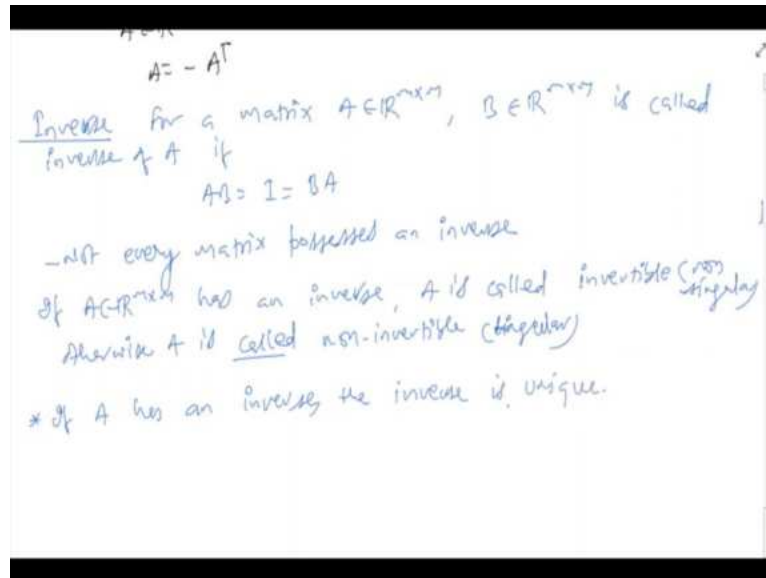 A = - Aᵀ
Inverse for a matrix A ∈ ℝⁿˣⁿ, B ∈ ℝⁿˣⁿ is called
inverse of A if
AB = I = BA
- Not every matrix possessed an inverse
If A ∈ ℝⁿˣⁿ has an inverse, A is called invertible (non
singular
Otherwise A is called non-invertible (singular)
* If A has an inverse, the inverse is unique.